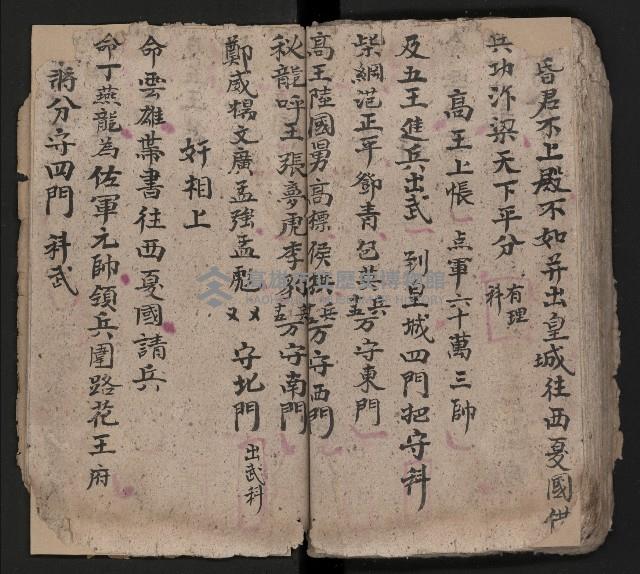 昏君不上殿不如并出皇城往西夏國借
兵功汴梁天下平分 有理科
高王上帳 点軍六十萬三帥
及五王進兵出武 到皇城四門把守科
柴綱范正平鄧青包 万守東門
高王陸國男高標侯 万守西門
秋龍呼王張夢虎李豹 万守南門
鄭威楊文廣孟強孟彪 又又守北門 出武科
奸相上
命雲雄帶書往西夏國請兵
命丁燕龍為佐軍元帥領兵圍路花王府
將分守四門 科武
高雄市立歷史博物館